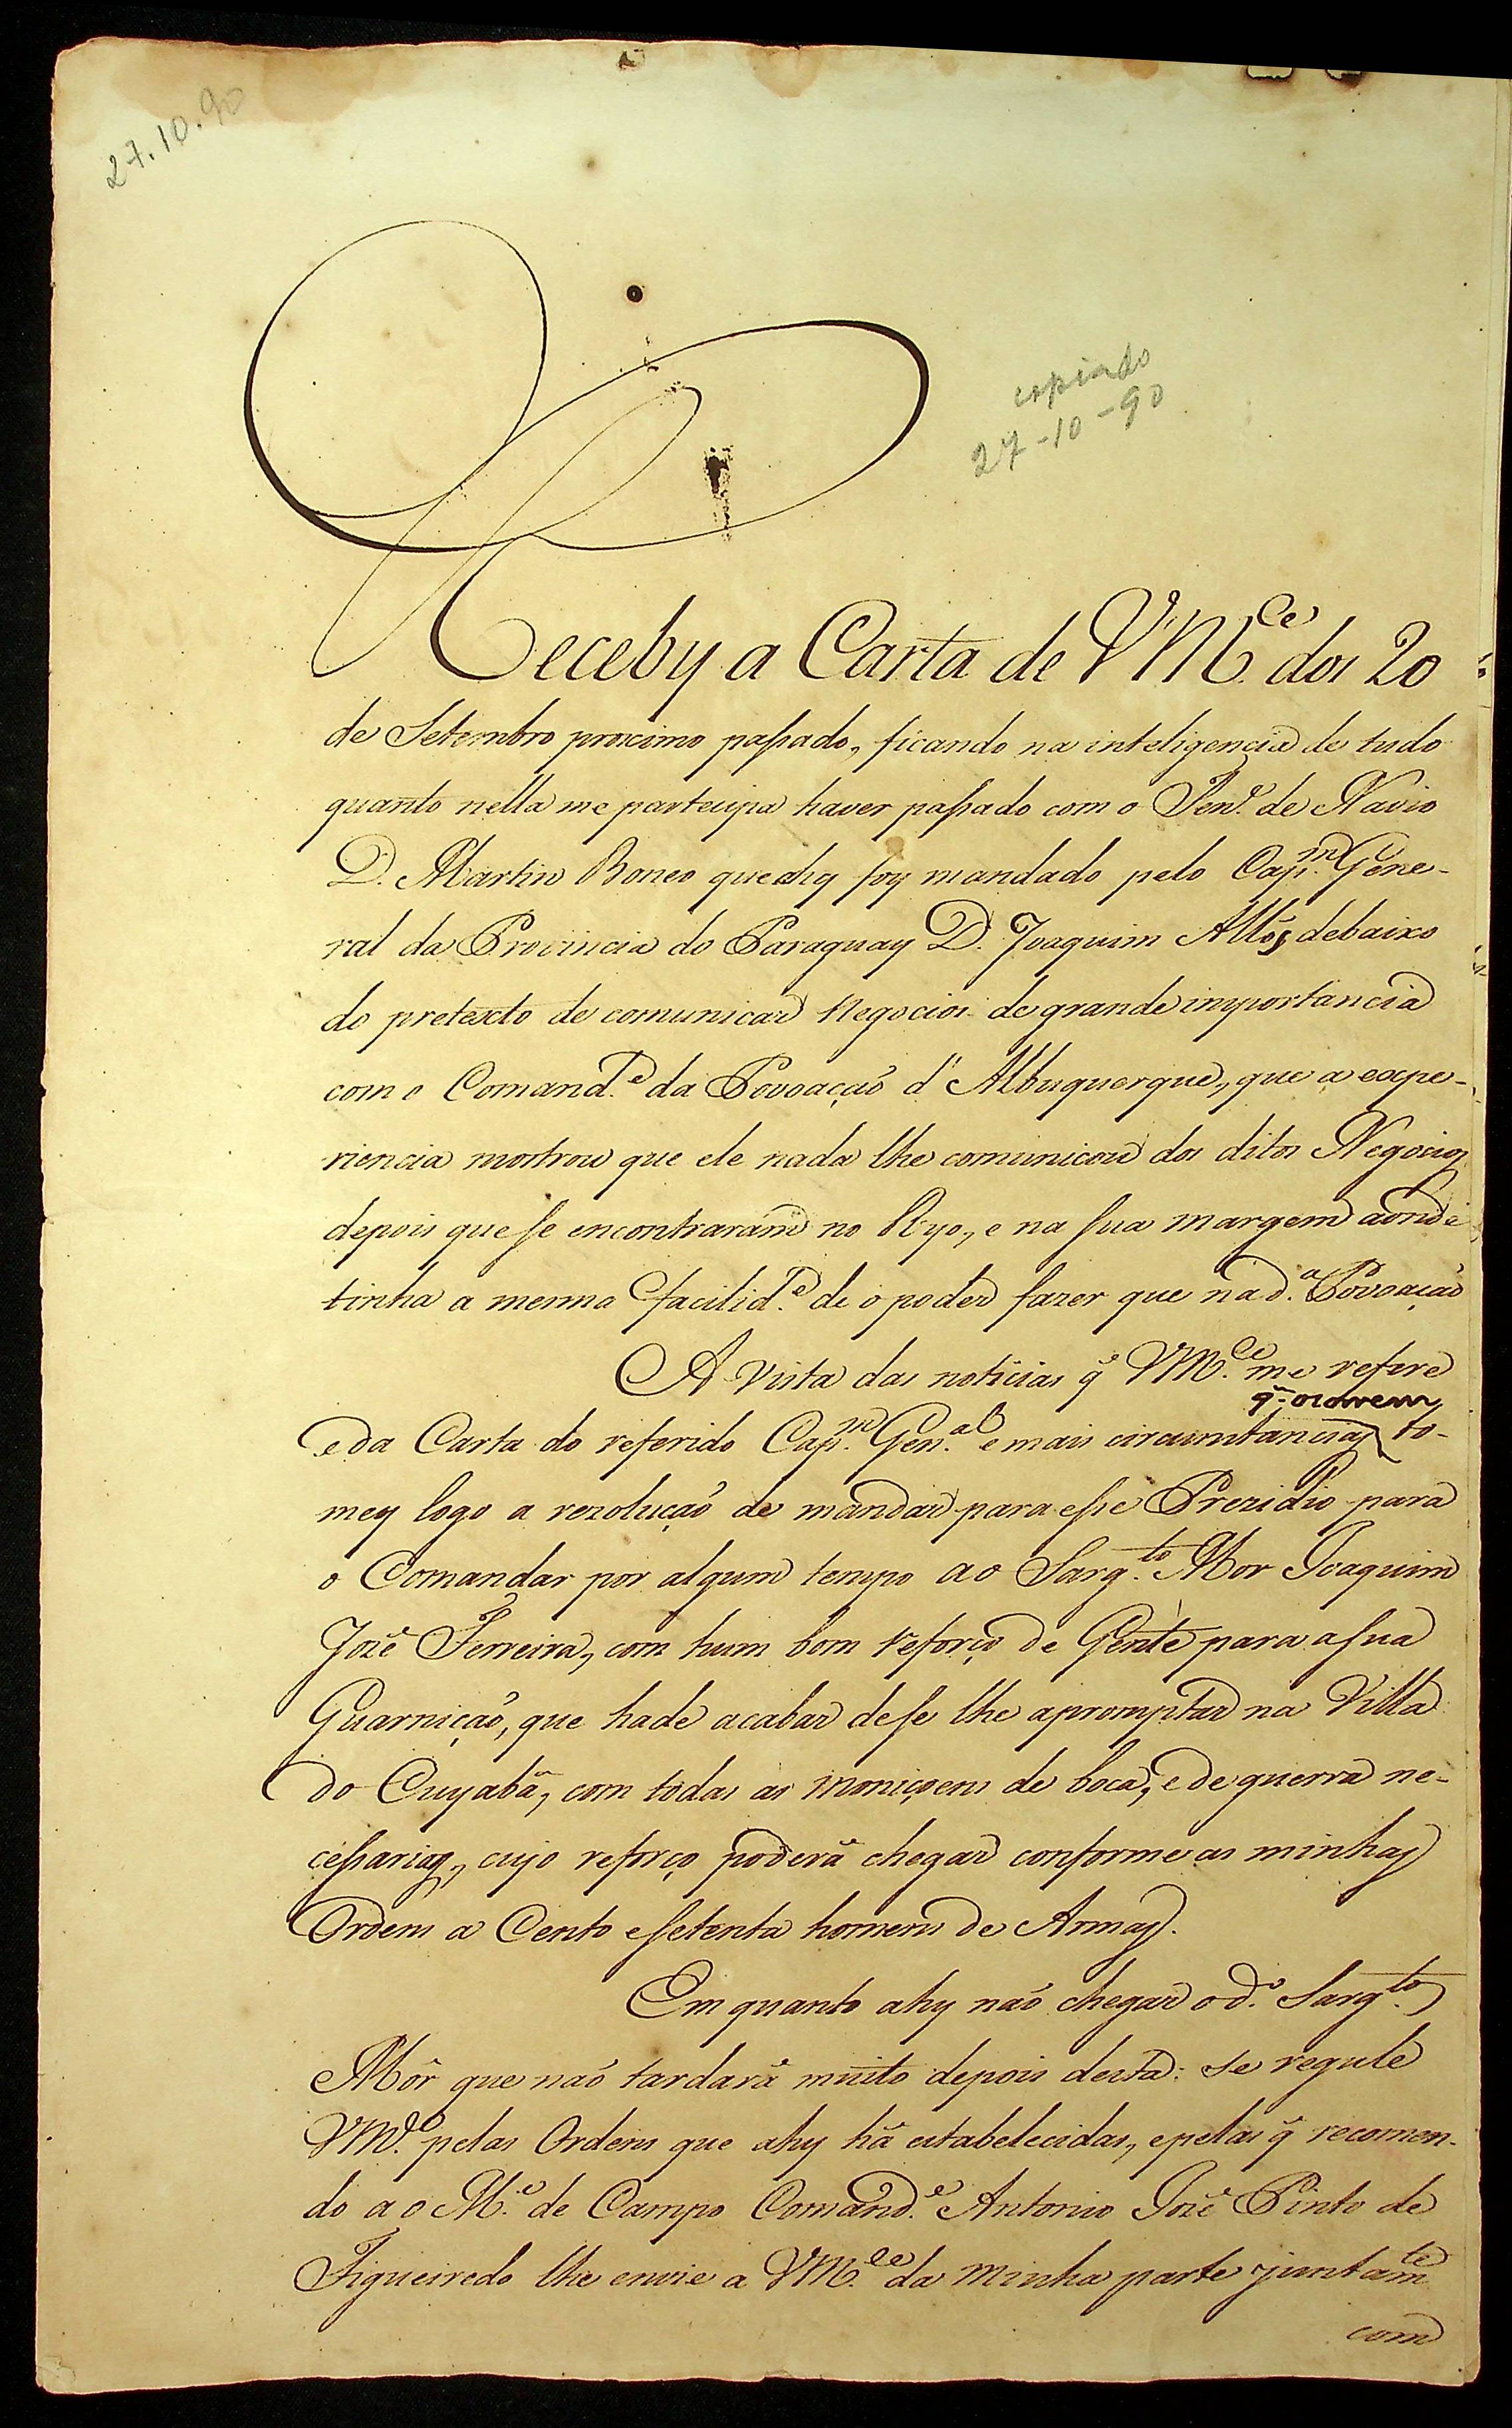 27.10.90
copiado
27-10-90
Receby a Carta de VM.ce dos 20
de Setembro proximo passado, ficando na inteligencia de tudo
quanto nella me partecipa haver passado com o Ten.e de Navio
D. Martin Boneo que ahy foy mandado pelo Cap.m Gene-
ral da Provincia do Paraguay D. Joaquim Allós, debaixo
do pretexto de comunicar Negocios de grande importancia
com o Comand.e da Povoação d'Albuquerque, que a expe-
riencia mostrou que ele nada lhe comunicou dos ditos Negocios
depois que se encontraram no Ryo, e na sua margem aonde
tinha a mesma facilid.e de o poder fazer que na d.a Povoação
A vista das noticias q̃ VM.ce me refere
q.' ocorrem,
e da Carta do referido Cap.m Gen.al e mais circumstancias to-
mey logo a rezolução de mandar para esse Prezidio para
o Comandar por algum tempo ao Sarg.to Mor Joaquim
Jozê Ferreira, com hum bom reforço de Gente para a sua
Guarnição, que hade acabar de se lhe apromptar na Villa
do Cuyabâ, com todas as moniçoens de boca, e de guerra ne-
cessarias, cujo reforço poderâ chegar conforme as minhas
Ordens a Cento e setenta homens de Armas.
Em quanto ahy não chegar o d.o Sarg.to
Môr que não tardarâ muito depois desta: se regule
VM.ce pelas Ordens que ahy hâ estabelecidas, e pelas q̃ recomen-
do ao M.e de Campo Comand.e Antonio Jozê Pinto de
Figueiredo lhe envie a VM.ce da minha parte juntam.te
com